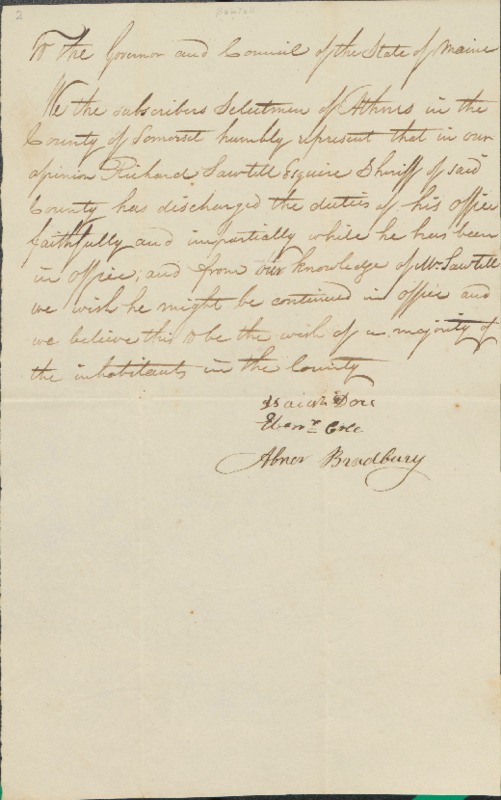 2
To the Governor and Council of the State of Maine
We the subscribers Selectmen of Athens in the
County of Somerset humbly represent that in our
opinion Richard Sawtell Esquire Sheriff of said
County has discharged the duties of his office
faithfully and impartially while he has been
in office; and from our knowledge of Mr. Sawtell
we wish he might be continued in office and
we believe this to be the wish of a majority of
the inhabitants in the County
Isaiah Dore
Ebenr.
Abner Bradbury